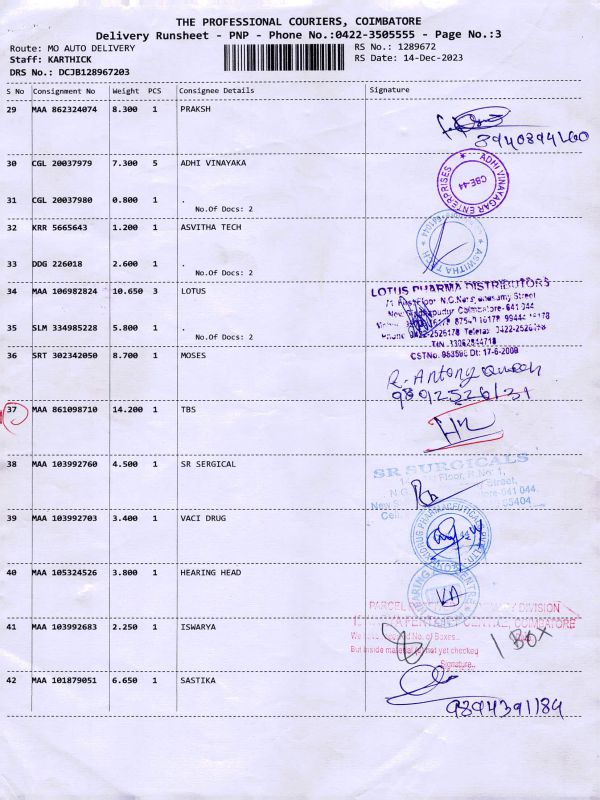 THE PROFESSIONAL COURIERS, COIMBATORE
Delivery Runsheet - PNP - Phone No.:0422-3505555 - Page No.:3
Route: MO AUTO DELIVERY
RS No.: 1289672
Staff: KARTHICK
RS Date: 14-Dec-2023
DRS No.: DCJB128967203
S No Consignment No Weight PCS Consignee Details Signature
29 MAA 862324074 8.300 1 PRAKSH
8940894160
30 CGL 20037979 7.300 5 ADHI VINAYAKA
ADHI VINAYAGAR ENTERPRISES
CBE-44
31 CGL 20037980 0.800 1 .
No.Of Docs: 2
32 KRR 5665643 1.200 1 ASVITHA TECH
ASWITHA TECH
33 DDG 226018 2.600 1 .
No.Of Docs: 2
34 MAA 106982824 10.650 3 LOTUS
LOTUS PHARMA DISTRIBUTORS
Street
Coimbatore-641 044
0422-2526178
35 SLM 334985228 5.800 1 .
No.Of Docs: 2
CSTNo. Dt: 17-6-2009
36 SRT 302342050 8.700 1 MOSES
R. Antony
37 MAA 861098710 14.200 1 TBS
38 MAA 103992760 4.500 1 SR SERGICAL
SR SURGICALS
Floor, R.No: 1,
Street,
641 044
39 MAA 103992703 3.400 1 VACI DRUG
40 MAA 105324526 3.800 1 HEARING HEAD
HEARING CENTRE
PARCEL DIVISION
41 MAA 103992683 2.250 1 ISWARYA
CENTRAL, COIMBATORE
We No. of Boxes..
But inside not yet checked
Signature..
1 BOX
42 MAA 101879051 6.650 1 SASTIKA
9894391184